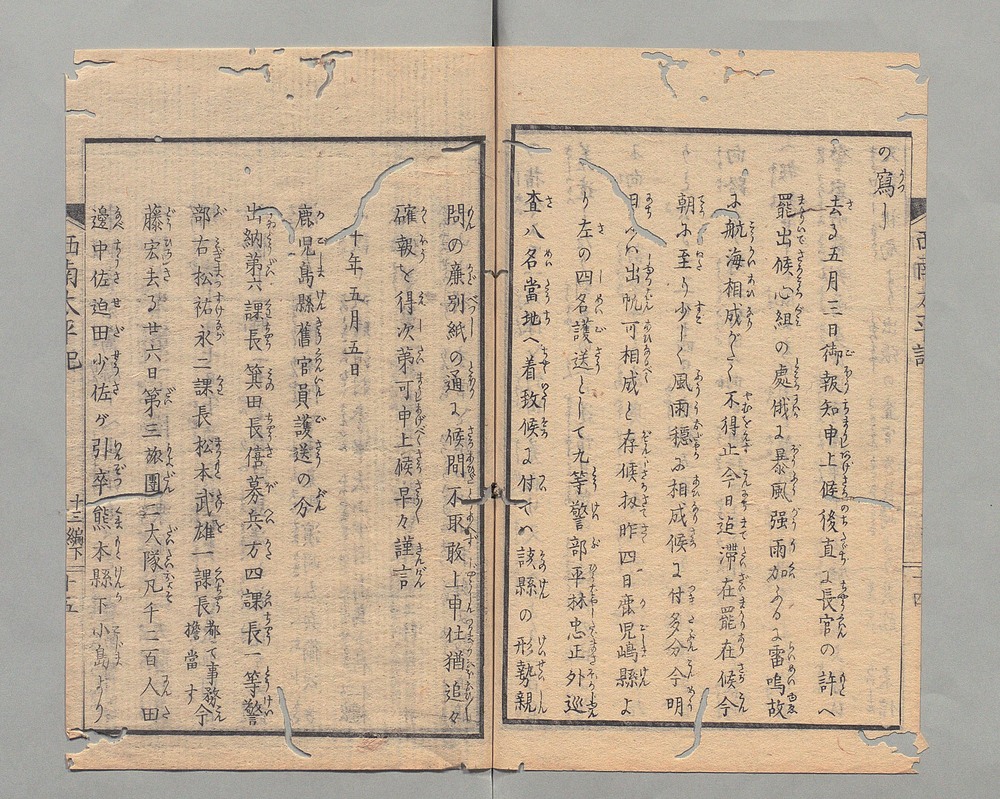 の寫し
去る五月三日御報知申上候後直ニ長官の許へ
罷出候心組の處俄ニ暴風强雨加ふるニ雷鳴故
ニ航海相成がたく不得止今日迠滞在罷在候今
朝ニ至り少しく風雨穏ニ相成候ニ付多分今明
日ハ出帆可相成と存候扨昨四日鹿児嶋縣よ
り左の四名護送として九等警部平林忠正外巡
査八名當地へ着致候ニ付てハ該縣の形勢親
問の廉別紙の通り候間不取敢上申仕猶追々
確報を得次第可申上候早々謹言
十年五月五日
鹿児島縣舊官員護送の分
出納第六課長蓑田長僖募兵方四課長一等警
部右松祐永二課長松本武雄一課長都て事務今擔當す
藤宏去る廿六日第三旅團三大隊凡千二百人田
邊中佐迫田少佐が引卒熊本縣下小島より
西南太平記
十三編下
十五